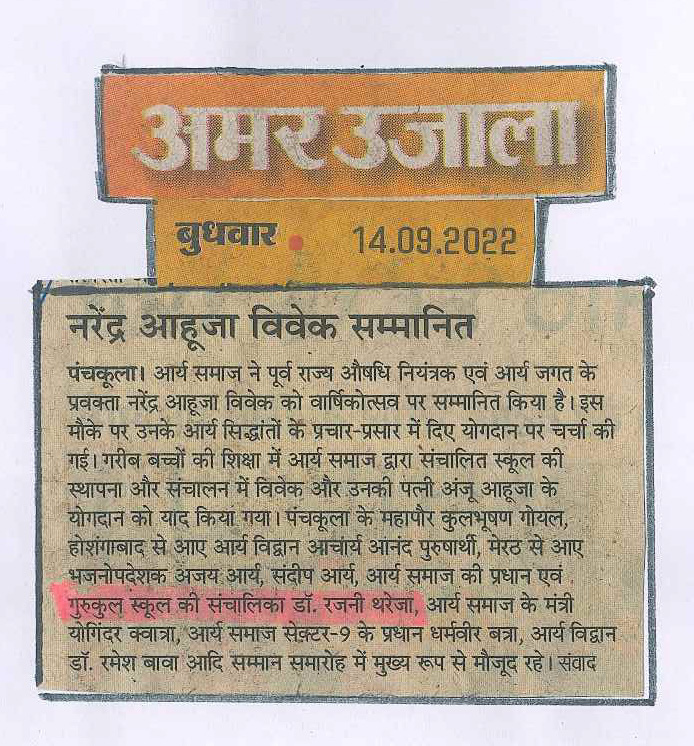 अमर उजाला
बुधवार • 14.09.2022
नरेंद्र आहूजा विवेक सम्मानित
पंचकूला। आर्य समाज ने पूर्व राज्य औषधि नियंत्रक एवं आर्य जगत के
प्रवक्ता नरेंद्र आहूजा विवेक को वार्षिकोत्सव पर सम्मानित किया है। इस
मौके पर उनके आर्य सिद्धांतों के प्रचार-प्रसार में दिए योगदान पर चर्चा की
गई। गरीब बच्चों की शिक्षा में आर्य समाज द्वारा संचालित स्कूल की
स्थापना और संचालन में विवेक और उनकी पत्नी अंजू आहूजा के
योगदान को याद किया गया। पंचकूला के महापौर कुलभूषण गोयल,
होशंगाबाद से आए आर्य विद्वान आचार्य आनंद पुरुषार्थी, मेरठ से आए
भजनोपदेशक अजय आर्य, संदीप आर्य, आर्य समाज की प्रधान एवं
गुरुकुल स्कूल की संचालिका डॉ. रजनी थरेजा, आर्य समाज के मंत्री
योगिंदर क्वात्रा, आर्य समाज सेक्टर-9 के प्रधान धर्मवीर बत्रा, आर्य विद्वान
डॉ. रमेश बावा आदि सम्मान समारोह में मुख्य रूप से मौजूद रहे। संवाद